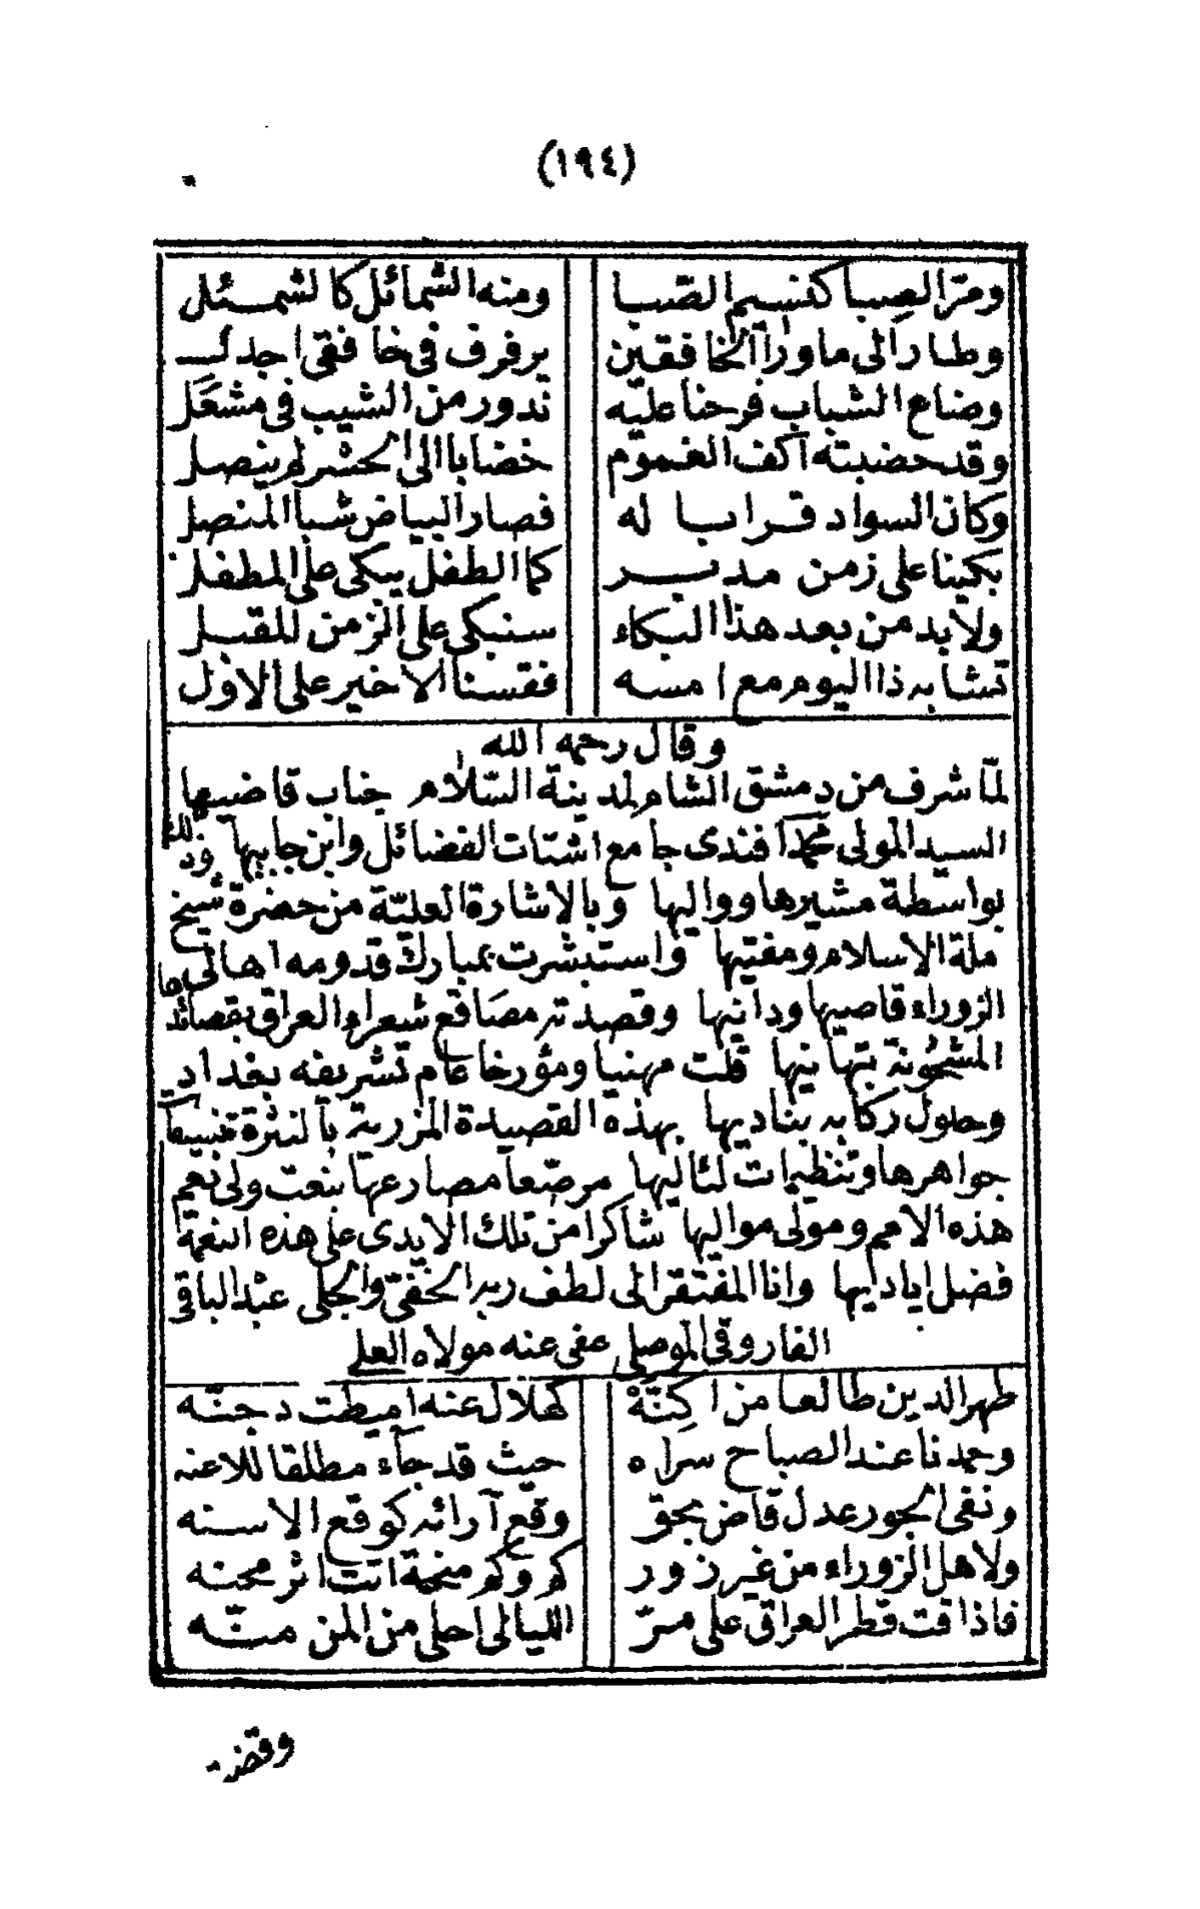 (١٩٤)
ومرّ الصِبا كنسيم الصّبا ومنه الشمائل كالشمئل
وطار الى ماوراآ الخافقين يرفرف فى خافقى اجدل
وضاع الشباب فرحنا عليّه ندور من الشيب فى مشعَل
وقد حضبته آكف الغموم خضابا الى الحشر لم ينصل
وكان السواد قرابا له فصار البياض شبا المنصل
بكينا على زمن مدبر كما الطفل يبكى على المطفل
ولابد من بعد هذا البكاء سنبكى على الزمن المقبل
تشابه ذا اليوم مع امسه فقسنا الاخير على الاوّل
وقال رحمه الله
لمّا شرف من دمشق الشام لمدينة السّلام جناب قاضيها
السيد المولى محمد آفندى جامع اشتات الفضائل وابن جابيها وذلك
بواسطة مشيرها وواليها وبالاشارة العليّة من حضرة شيخ
ملة الاسلام ومفتيها واستبشرت بمبارك قدومه اهالى
الزوراء قاصيها ودانيها وقصدته مصَاقع شعراء العراق بقصائد
المشحُونة بتهانيها قلت مهنيا ومؤرخا عام تشريفه بغداد
وحلول ركابه بناديها بهذه القصيدة المزرية بالنثرة
جواهرها وتنظيمات لئاليها مرصّعا مصارعها بنعت ولى نعم
هذه الامم ومولى مواليها شاكرا من تلك الايدى على هذه النعمة
فضل اياديها وانا المفتقر الى لطف ربه الخفىّ والجلى عبد الباقى
الفاروقى الموصلى عفى عنه مولاه العلى
ظهر الدين طالعا من اكِنّة كهلال عنه اميطت دجنّه
وحمدنا عند الصباح سراه حيث قد جآء مطلقا للاعنه
ونفى الجور عدل قاض بحق وقع آرائه كوقع الاسنه
ولاهل الزوراء من غير زور كم وكم منحة اتت اثر محنه
فاذاقت قطر العراق على مرّ الليالى احلى من المن منّه
وقضت